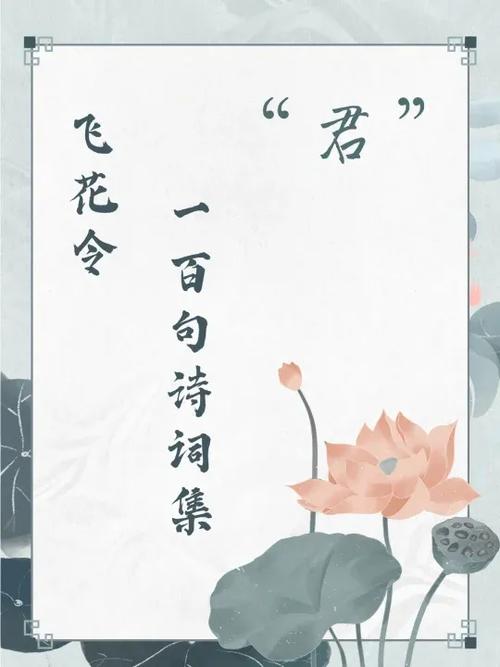 飞花令
一百句诗词集
“君”